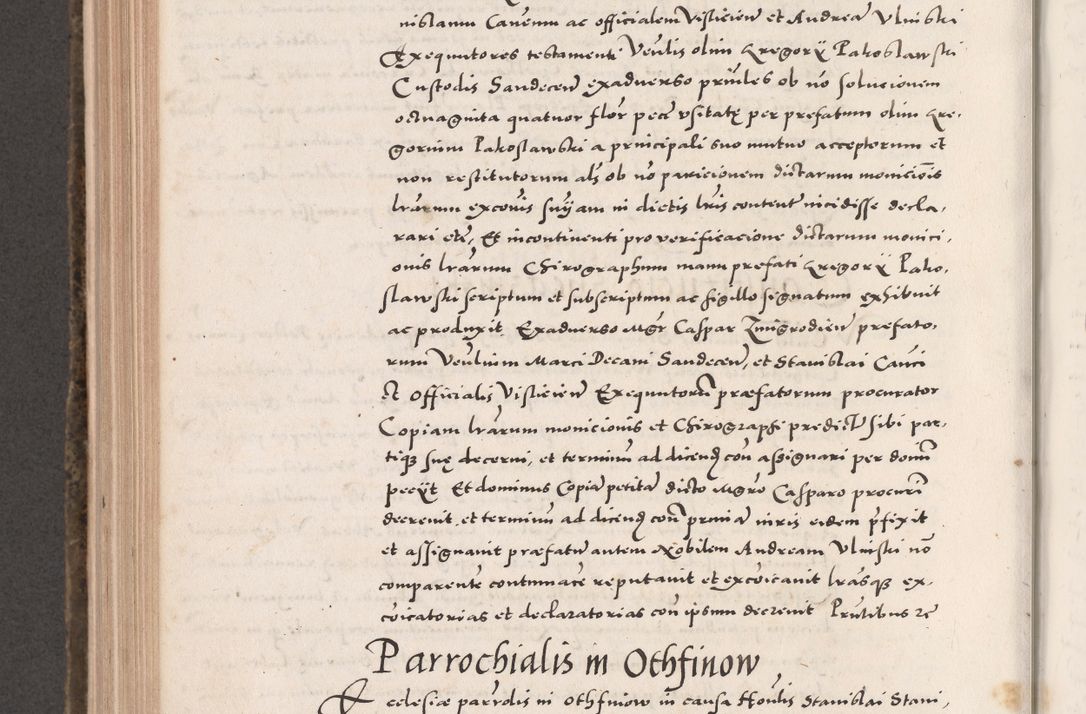 nislaum Cauenum ac officialem Visliciens et Andrea Vlniski
Exequutores testamenti Venlis olim Gregorij Pakoslawski
Custodis Sandecens exaduerso prniles ob nō solucionem
octuaginta quatuor flor pece vsitatę per prefatum olim Gre,
gorium Pakoslawski a principali suo mutuo acceptorum et
non restitutorum als ob nō paricionem dictarum monicionis
lrarum excouis suijam in dictis lris content incidisse decla,
rari etc, Et incontinenti pro verificacione dictarum monici,
onis lrarum Chirographum manu prefati Gregorij Pako,
slawski scriptum et subscriptum ac sigillo signatum exhibuit
ac produxit Exaduerso Mgr Caspar Zmigrodien prefato,
rum Venlium Marci Decani Sandecen, et Stanislai Canci
Et Officialis Visliciens Exequutorū præfatorum procurator
Copiam lrarum monicionis et Chirographi predict sibi par,
tiq3 suę decerni, et terminū ad dicend con assignari per domī
pecijt Et dominus Copia petita dicto Mgro Casparo procurī
decreuit, et terminū ad dicend con prmia iuris eidem pfixit
et assignauit præfatū autem Nobilem Andream Vlniski nō
comparente contumace reputauit et excōicauit lrasq3 ex,
cōicatorias et declaratorias con ipsum decreuit Prntibus re
Parrochialis in Othfinow
Ecclesiæ parrolis in Othfinow in causa Honlis Stanislai Stani,